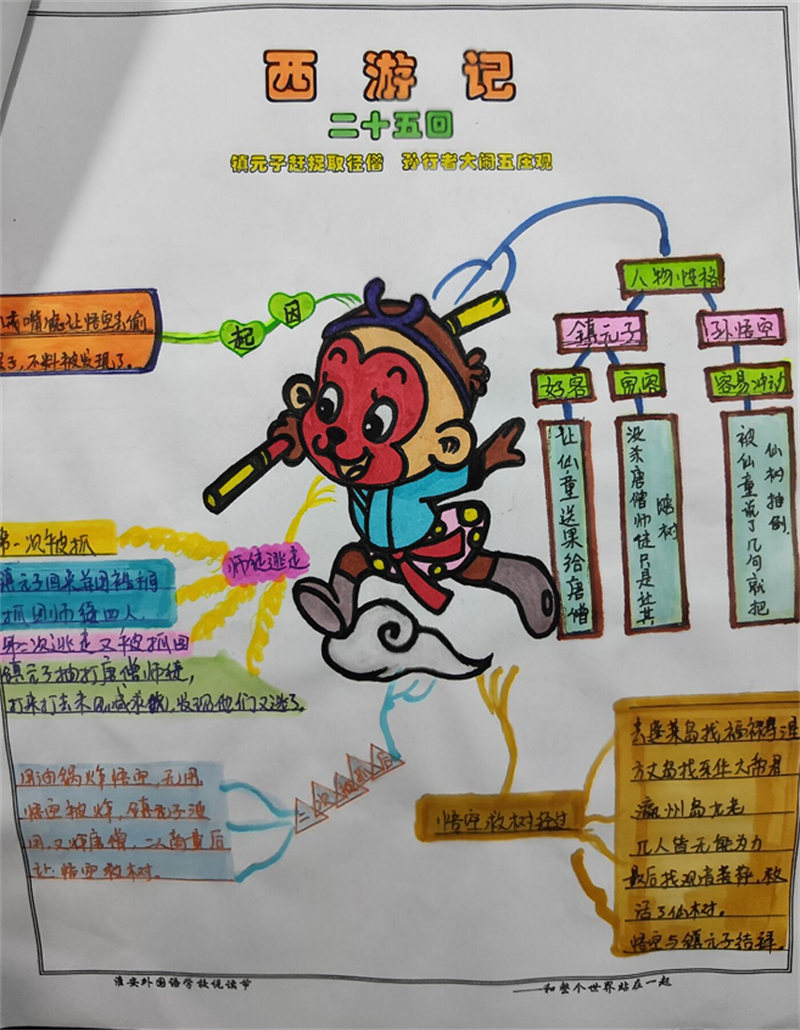 西游记
二十五回
镇元子赶捉取径僧 孙行者大闹五庄观
起因
戒嘴馋让悟空去偷
了，不料被发现了。
人物性格
镇元子
孙悟空
好客
容易冲动
让仙童送果给唐僧
没杀唐僧师徒只是让其
赔树
被仙童说了几句就把
仙树推倒。
师徒逃走
第一次被抓
镇元子回来
抓回师徒四人
第二次逃走又被抓回
镇元子抽打唐僧师徒，
打来打去未见减柔弱，发现他们又逃了。
二次被抓后
用油锅炸悟空，无用
悟空被炸，镇元子没
用，又炸唐僧，二人商量后
让悟空救树。
悟空救树经过
去蓬莱岛找福禄寿星
方丈岛找东华大帝君
瀛州岛九老
几人皆无能为力
最后找观音菩萨，救
活了仙树。
悟空与镇元子结拜。
淮安外国语学校悦读节
——和整个世界站在一起